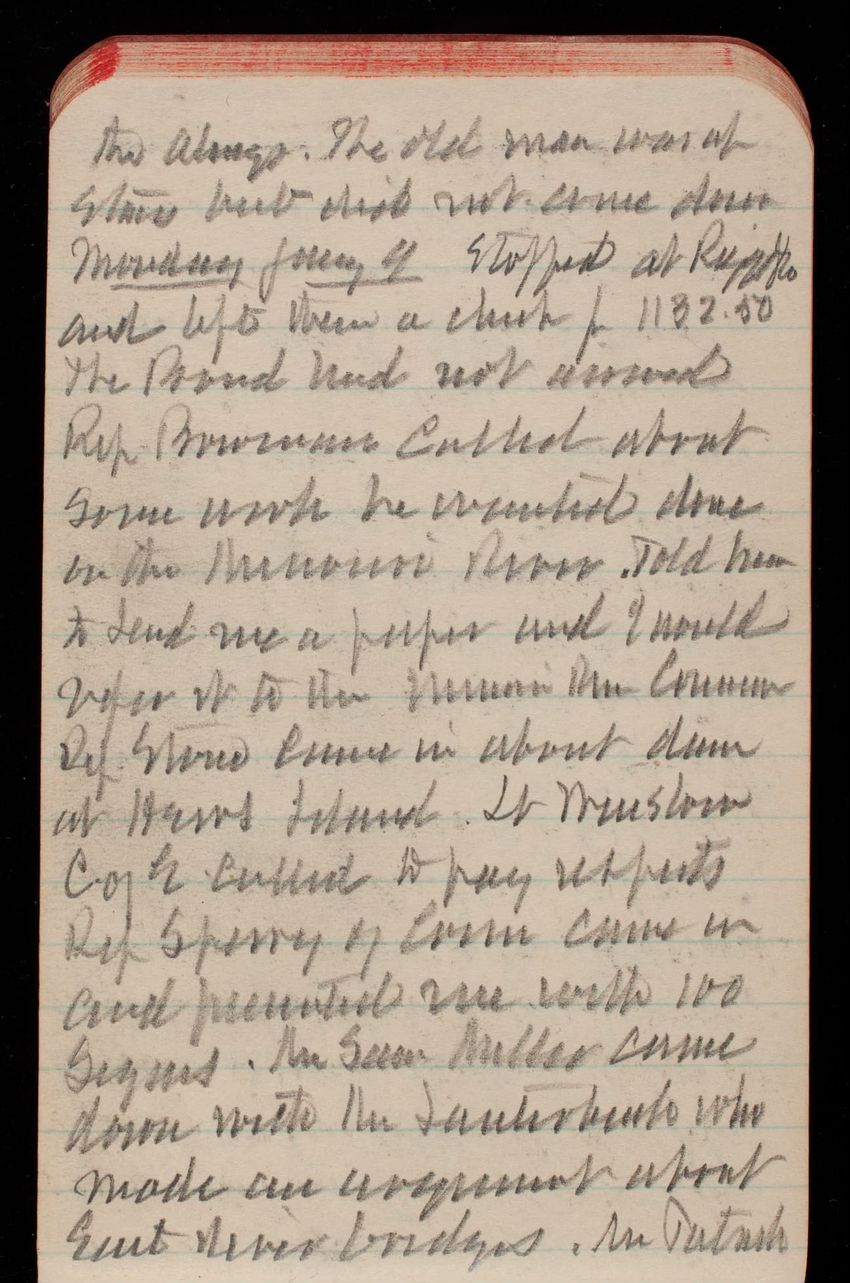 the Alwngs. The old man was up
Stairs but did not come down
Monday Jany 9 Stopped at Riggs & Co
and left them a check for 1132.50
The Bond had not arrived
Rep Bowman Called about
Some work he wanted done
on the Missouri River. Told him
to send me a paper and I would
refer it to the Missouri Riv Commn
Rep. Stone Came in about dam
at Herrs Island. Lt Winslow
C of E called to pay respects
Rep Sperry of Conn came in
and presented me with 100
Segars. Mr Saml Miller came
down with Mr Lauterbach who
made an argument about
East River bridges. Mr